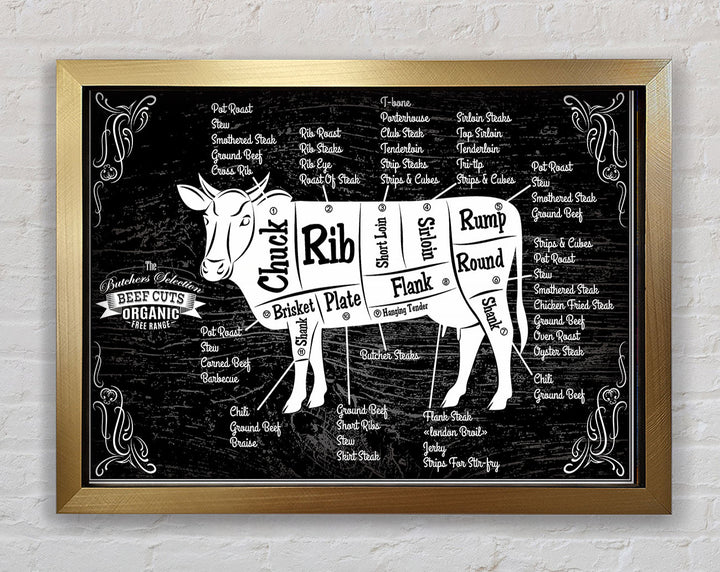 Pot Roast
Stew
Smothered Steak
Ground Beef
Cross Rib
Rib Roast
Rib Steaks
Rib Eye
Roast Of Steak
T-bone
Porterhouse
Club Steak
Tenderloin
Strip Steaks
Strips & Cubes
Sirloin Steaks
Top Sirloin
Tenderloin
Tri-tip
Strips & Cubes
Pot Roast
Stew
Smothered Steak
Ground Beef
Strips & Cubes
Pot Roast
Stew
Smothered Steak
Chicken Fried Steak
Ground Beef
Oven Roast
Oyster Steak
Chili
Ground Beef
① Chuck
② Rib
③ Short Loin
④ Sirloin
⑤ Rump
Round
Shank ⑦
Flank ⑧
⑨ Hanging Tender
Plate
Brisket
Shank
The
Butchers Selection
BEEF CUTS
ORGANIC
FREE RANGE
Pot Roast
Stew
Corned Beef
Barbecue
Chili
Ground Beef
Braise
Butcher Steaks
Ground Beef
Short Ribs
Stew
Skirt Steak
Flank Steak
«london Broil»
Jerky
Strips For Stir-fry